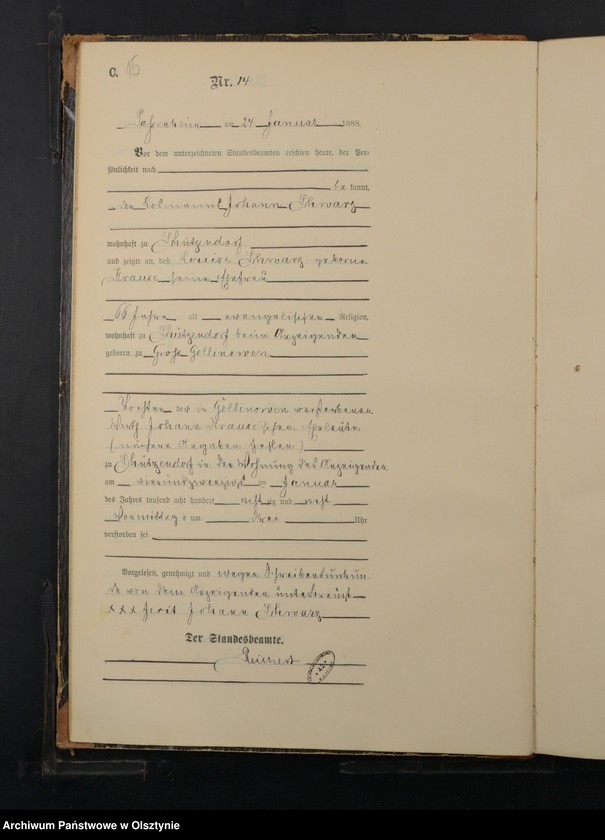 C. 15
Nr. 14
Passenheim am 24 Januar 1888.
Vor dem unterzeichneten Standesbeamten erschien heute, der Per-
sönlichkeit nach
be kannt,
den Johann Schwarz
wohnhaft zu Schützendorf
und zeigte an, daß Louise Schwarz geborne
Krause seine Ehefrau
66 Jahre alt evangelischen Religion,
wohnhaft zu Schützendorf beim Anzeigenden
geboren zu Groß Gellinowen
Tochter der in Gellinowen verstorbenen
Wirth Johann Krause'schen Eheleute
(nähere Angaben fehlen)
zu Schützendorf in der Wohnung des Anzeigenden
am vierundzwanzigst en Januar
des Jahres tausend acht hundert achtzig und acht
Vormittags um drei Uhr
verstorben sei
Vorgelesen, genehmigt und wegen Schreibensunkun
de von dem Anzeigenden unterkreuzt
xxx Johann Schwarz
Der Standesbeamte.
Reichert
Archiwum Państwowe w Olsztynie